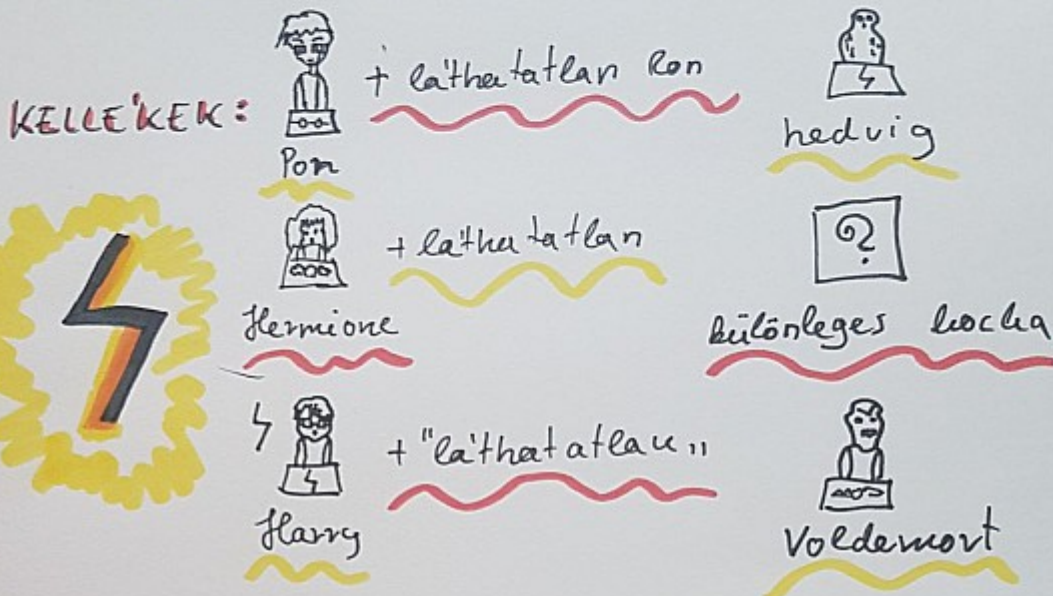 KELLÉKEK:
+ láthatatlan Ron
Ron
hedvig
+ láthatatlan
?
Hermione
különleges kocka
+ "láthatatlan"
Harry
Voldemort